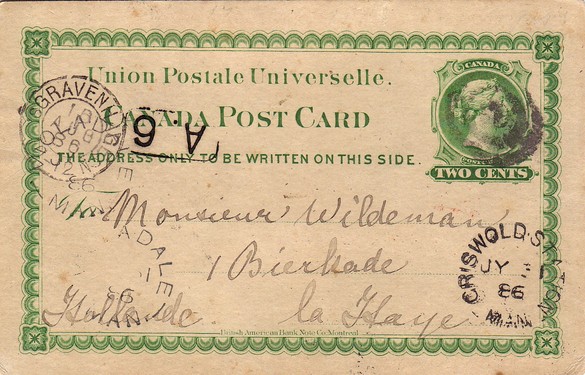 Union Postale Universelle.
CANADA POST CARD
THE ADDRESS ONLY TO BE WRITTEN ON THIS SIDE.
CANADA
TWO CENTS
A 6
Monsieur Wildeman
1 Bierkade
Hollande. la Haye
GRISWOLD STATION
JY
86
MAN
British American Bank Note Co. Montreal